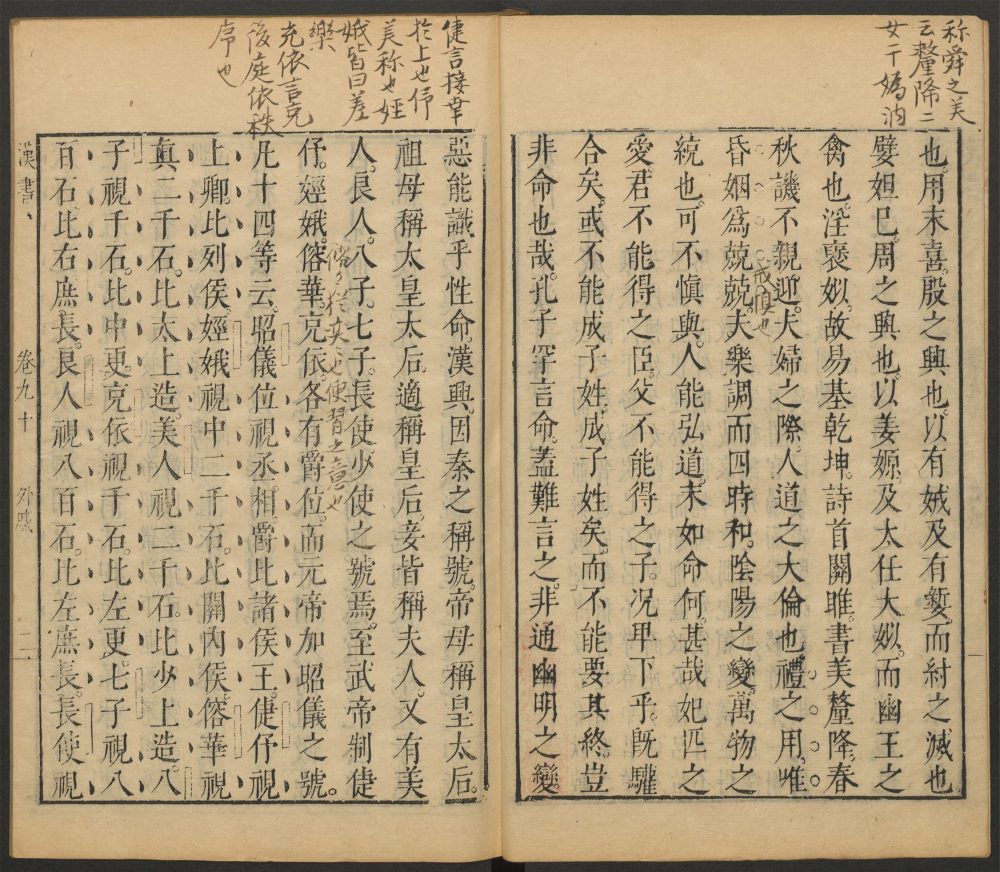 称舜之美
云釐降二
女于媯汭
也。用末喜。殷之興也。以有娀及有㜪。而紂之滅也。
嬖妲巳。周之興也。以姜嫄。及太任大姒。而幽王之
禽也。淫襃姒。故易基乾坤。詩首關雎。書美釐降。春
秋譏不親迎。夫婦之際。人道之大倫也。禮之用。唯
昏姻為兢兢。夫樂調而四時和。陰陽之變。萬物之
戒慎也
統也。可不慎與。人能弘道。末如命何。甚哉妃匹之
愛。君不能得之臣。父不能得之子。况甲下乎。旣驩
合矣。或不能成子姓。成子姓矣。而不能要其終。豈
非命也哉。孔子罕言命。蓋難言之。非通幽明之變。
倢言接幸
於上也伃
美称也娙
娥皆曰差
樂
充依言充
後庭依秩
序也
惡能識乎性命。漢興。因秦之稱號。帝母稱皇太后。
祖母稱太皇太后。適稱皇后。妾皆稱夫人。又有美
人。良人。八子。七子。長使少使之號焉。至武帝制倢
伃。娙娥。傛華。克依。各有爵位。而元帝加昭儀之號。
凡十四等云。昭儀位視丞相。爵比諸侯王。倢伃視
上卿。比列侯。娙娥視中二千石。比關內侯。傛華視
真二千石。比大上造。美人視二千石。比少上造。八
子視千石。比中更。克依視千石。比左更。七子視八
百石。比右庶長。良人視八百石。比左庶長。長使視
漢書、
卷九十
外戚
二